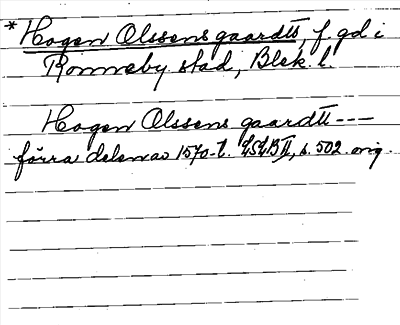 * Hogen Olssens gaardtt, f. gd i
Ronneby stad, Blek. l.
Hogen Olssens gaardtt ---
förra delen av 1570-t. LSLB II, s. 502. orig.